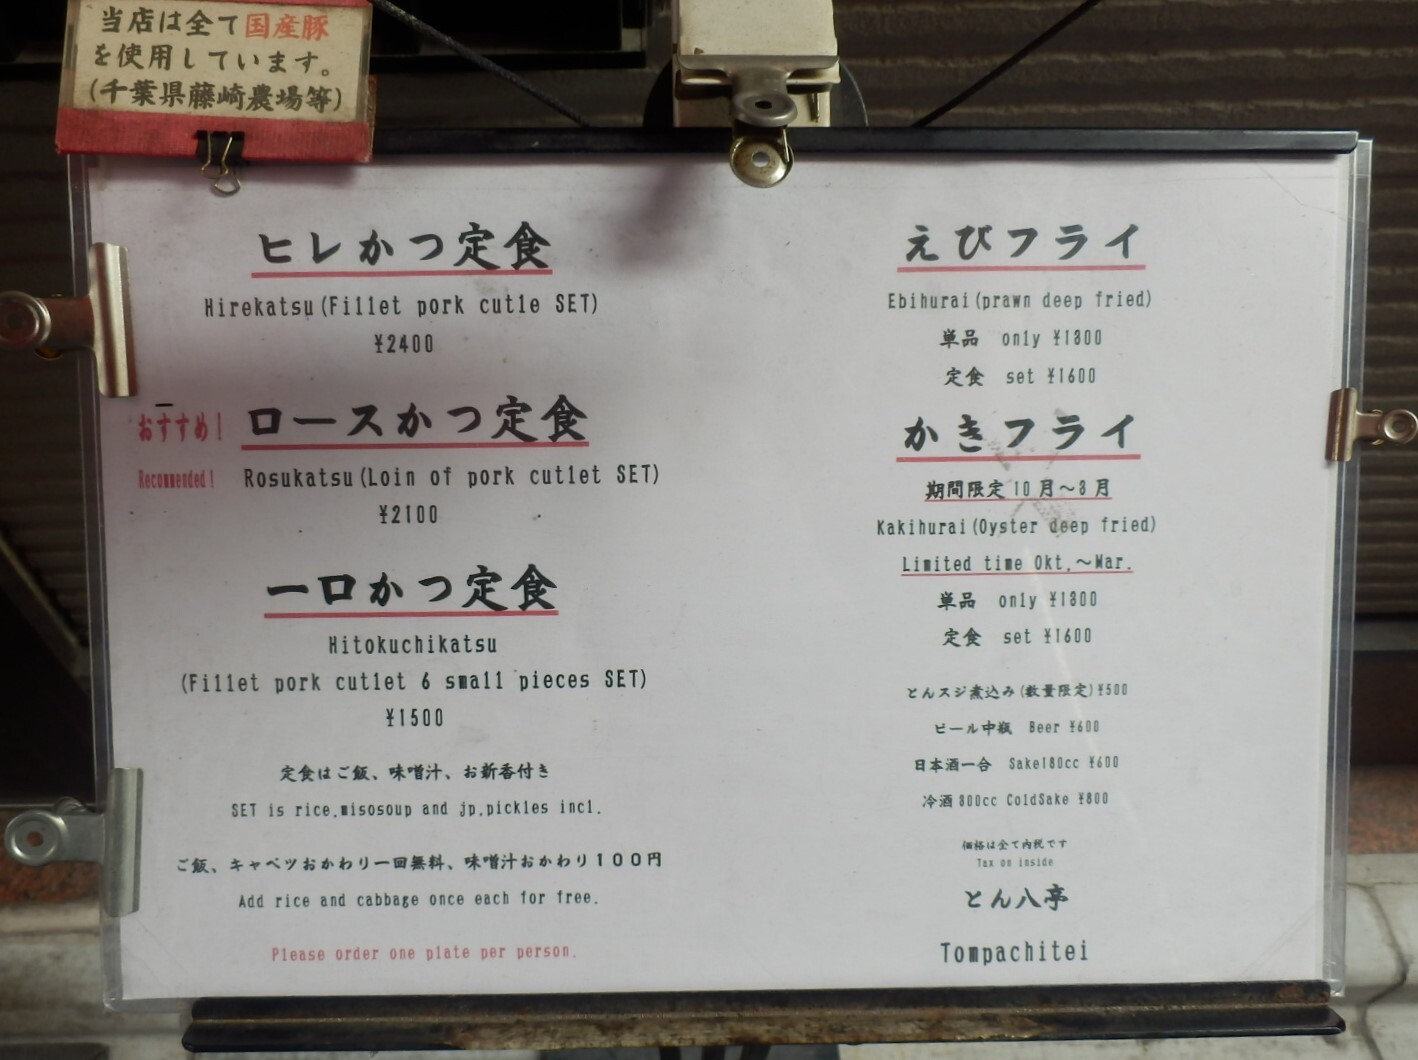 当店は全て国産豚
を使用しています。
(千葉県藤崎農場等)
ヒレかつ定食
Hirekatsu(Fillet pork cutle SET)
¥2400
おすすめ!
ロースかつ定食
Recommended!
Rosukatsu(Loin of pork cutlet SET)
¥2100
一口かつ定食
Hitokuchikatsu
(Fillet pork cutlet 6 small pieces SET)
¥1500
定食はご飯、味噌汁、お新香付き
SET is rice,misosoup and jp.pickles incl.
ご飯、キャベツおかわり一回無料、味噌汁おかわり100円
Add rice and cabbage once each for free.
Please order one plate per person.
えびフライ
Ebihurai(prawn deep fried)
単品 only ¥1300
定食 set ¥1600
かきフライ
期間限定10月~3月
Kakihurai(Oyster deep fried)
Limited time Okt.~Mar.
単品 only ¥1300
定食 set ¥1600
とんスジ煮込み(数量限定)¥500
ビール中瓶 Beer ¥600
日本酒一合 Sake180cc ¥600
冷酒300cc ColdSake ¥800
価格は全て内税です
Tax on inside
とん八亭
Tompachitei